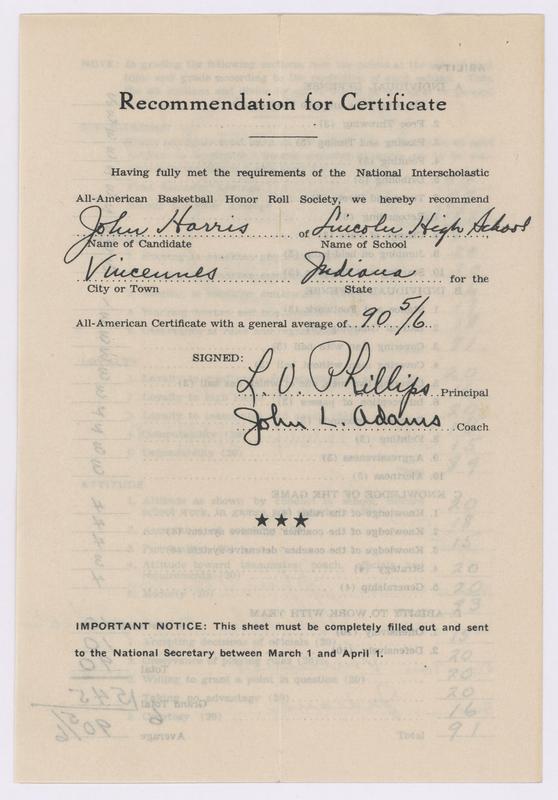 Recommendation for Certificate
Having fully met the requirements of the National Interscholastic
All-American Basketball Honor Roll Society, we hereby recommend
John Harris of Lincoln High School
Name of Candidate Name of School
Vincennes Indiana for the
City or Town State
All-American Certificate with a general average of 90 5/6
SIGNED:
L. V. Phillips Principal
John L. Adams Coach
★ ★ ★
IMPORTANT NOTICE: This sheet must be completely filled out and sent
to the National Secretary between March 1 and April 1.